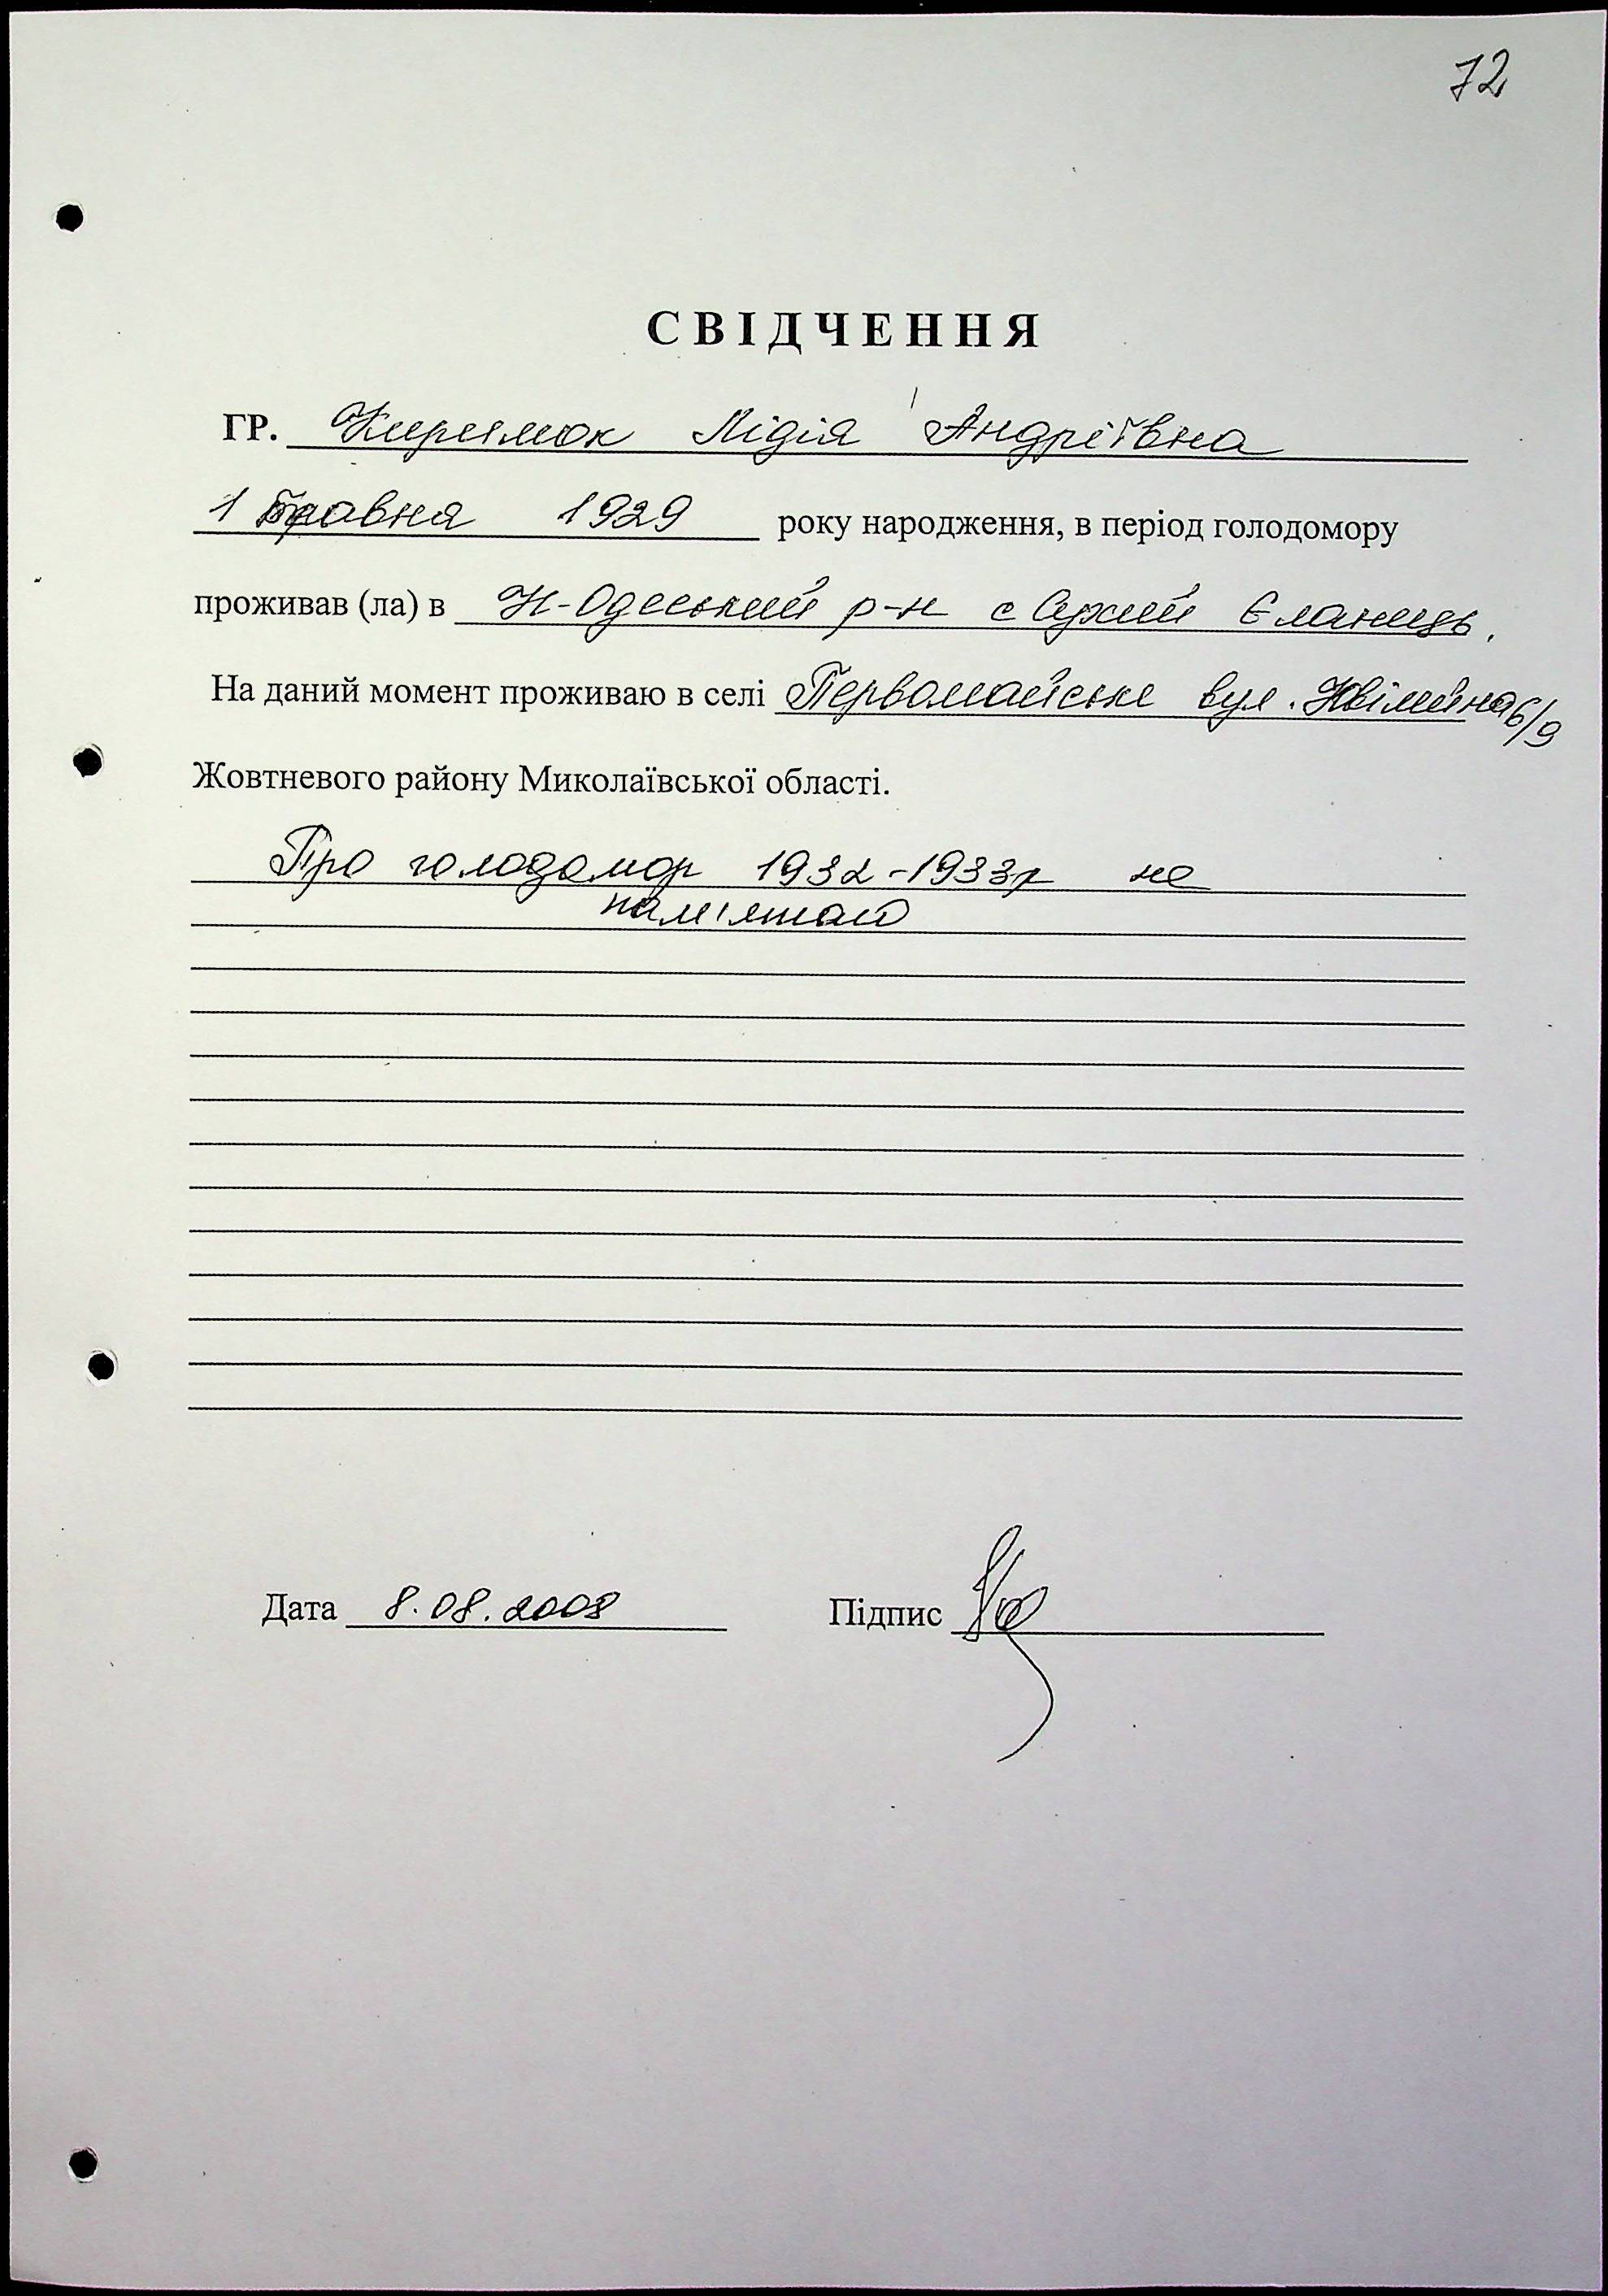 72
СВІДЧЕННЯ
ГР. Лідія Андріївна
1 травня 1929 року народження, в період голодомору
проживав (ла) в Н-Одеський р-н с Сухий Єланець.
На даний момент проживаю в селі Первомайське вул. 6/9
Жовтневого району Миколаївської області.
Про голодомор 1932-1933р не
пам'ятаю
Дата 8.08.2008 Підпис